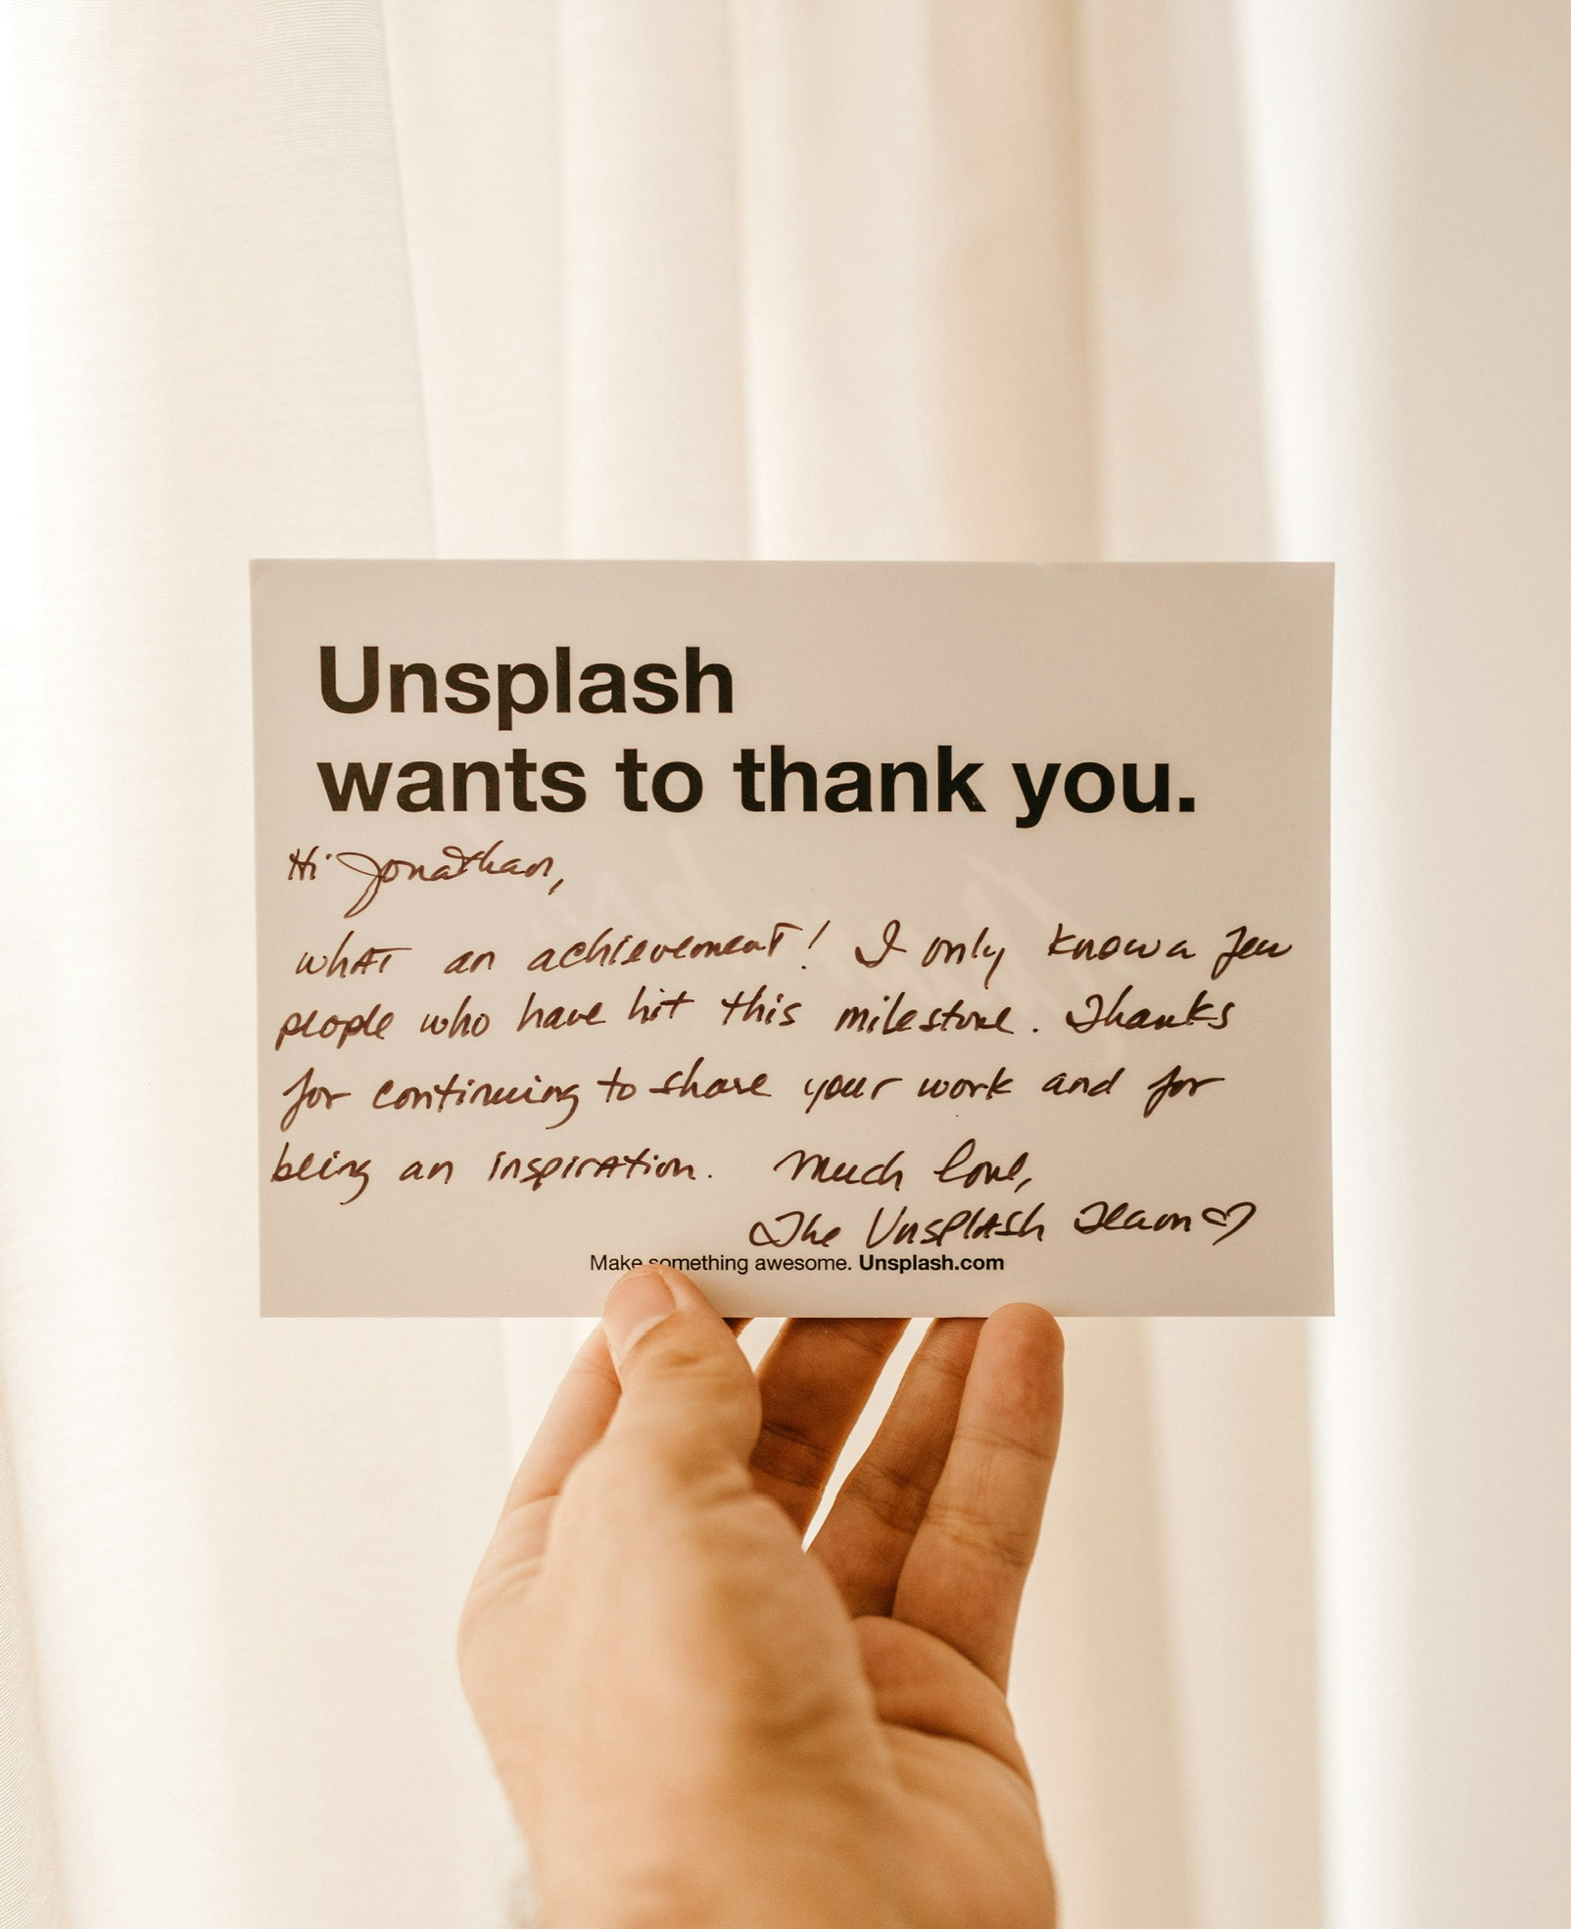 Unsplash
wants to thank you.
Hi Jonathan,
what an achievement! I only know a few
people who have hit this milestone. Thanks
for continuing to share your work and for
being an inspiration. Much love,
The Unsplash Team♡
Make something awesome. Unsplash.com